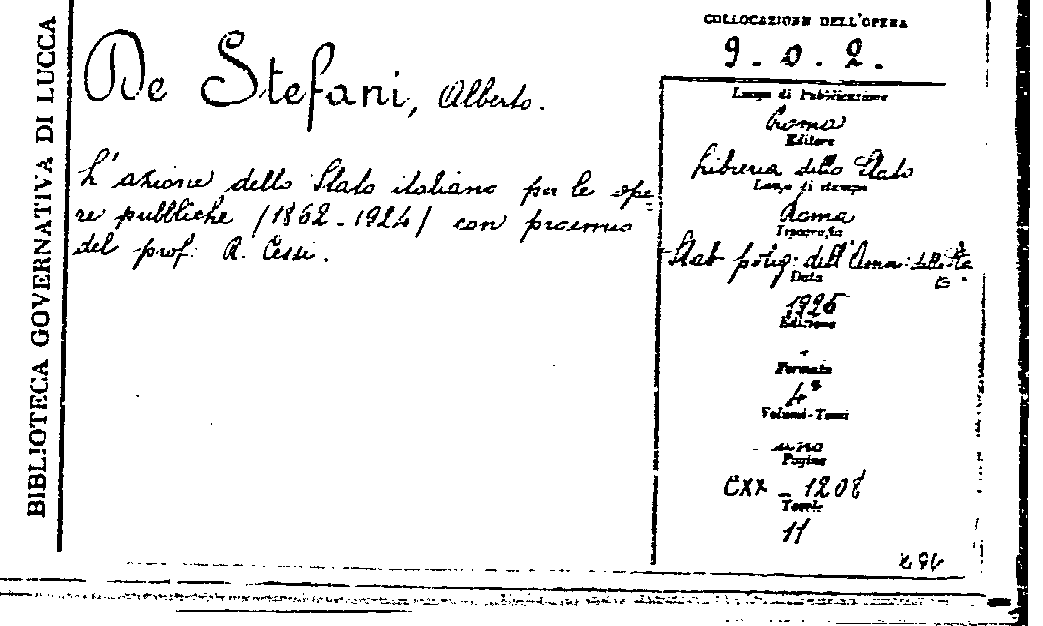 BIBLIOTECA GOVERNATIVA DI LUCCA
De Stefani, Alberto.
L'azione dello Stato italiano per le ope=
re pubbliche (1862-1924) con proemio
del prof. R. Cessi.
COLLOCAZIONE DELL'OPERA
9. 0. 2.
Luogo di Pubblicazione
Roma
Editore
Libreria dello Stato
Luogo di stampa
Roma
Tipografia
Stab. polig. dell'Amm. dello Sta
Data
1925
Edizione
Formato
4°
Volumi-Tomi
uno
Pagine
CXX - 1208
Tavole
11